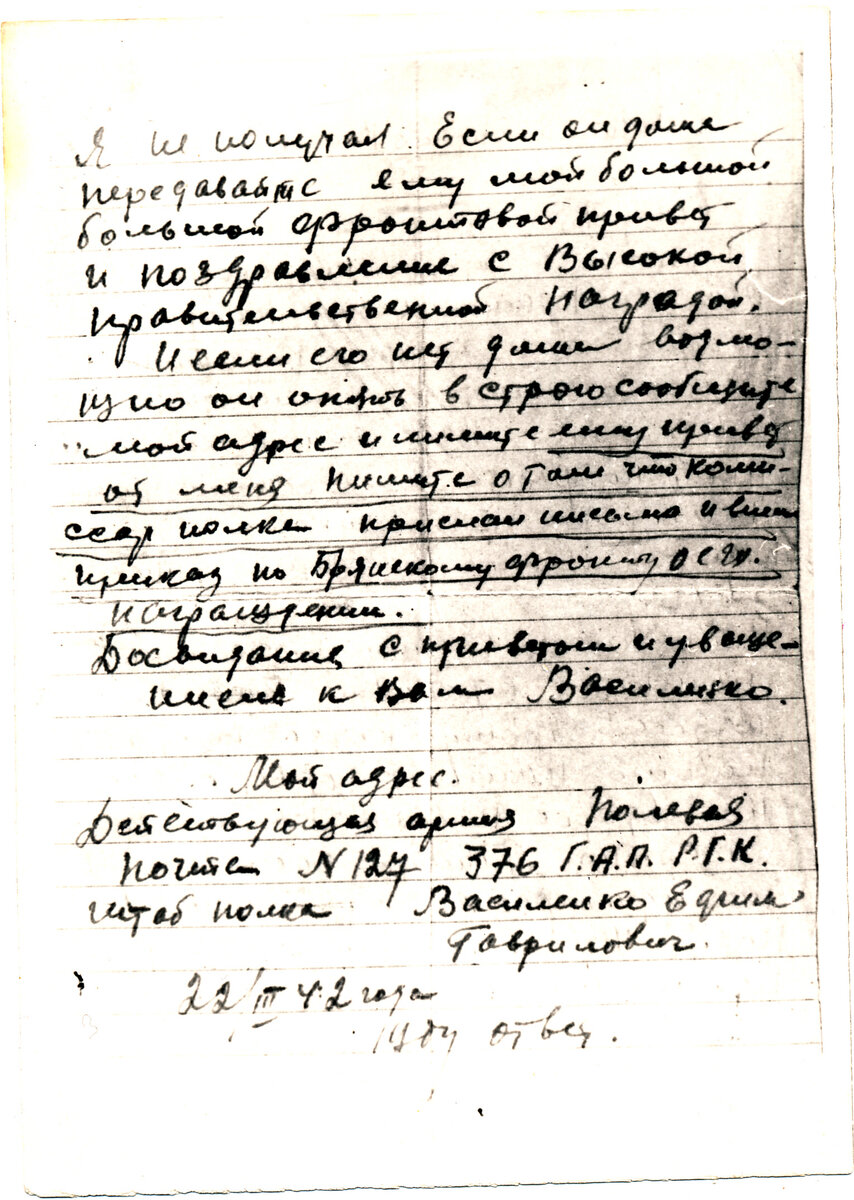 Я не получал. Если он дома
передавайте ему мой большой
большой фронтовой привет
и поздравление с Высокой
правительственной Наградой.
И если его нет дома возмо-
щно он опять в строю сообщите
мой адрес и пишите ему привет
от меня пишите о том что коми-
ссар полка прислал письмо и
приказ по Брянскому фронту о его
награщдении.
Досвидания с приветом и уваще-
нием к Вам Василенко.
Мой адрес.
Действующая армия Полевая
почта N 127 376 Г.А.П. Р.Г.К.
штаб полка Василенко Ефим
Гаврилович.
22/III 42 года
щду ответ.